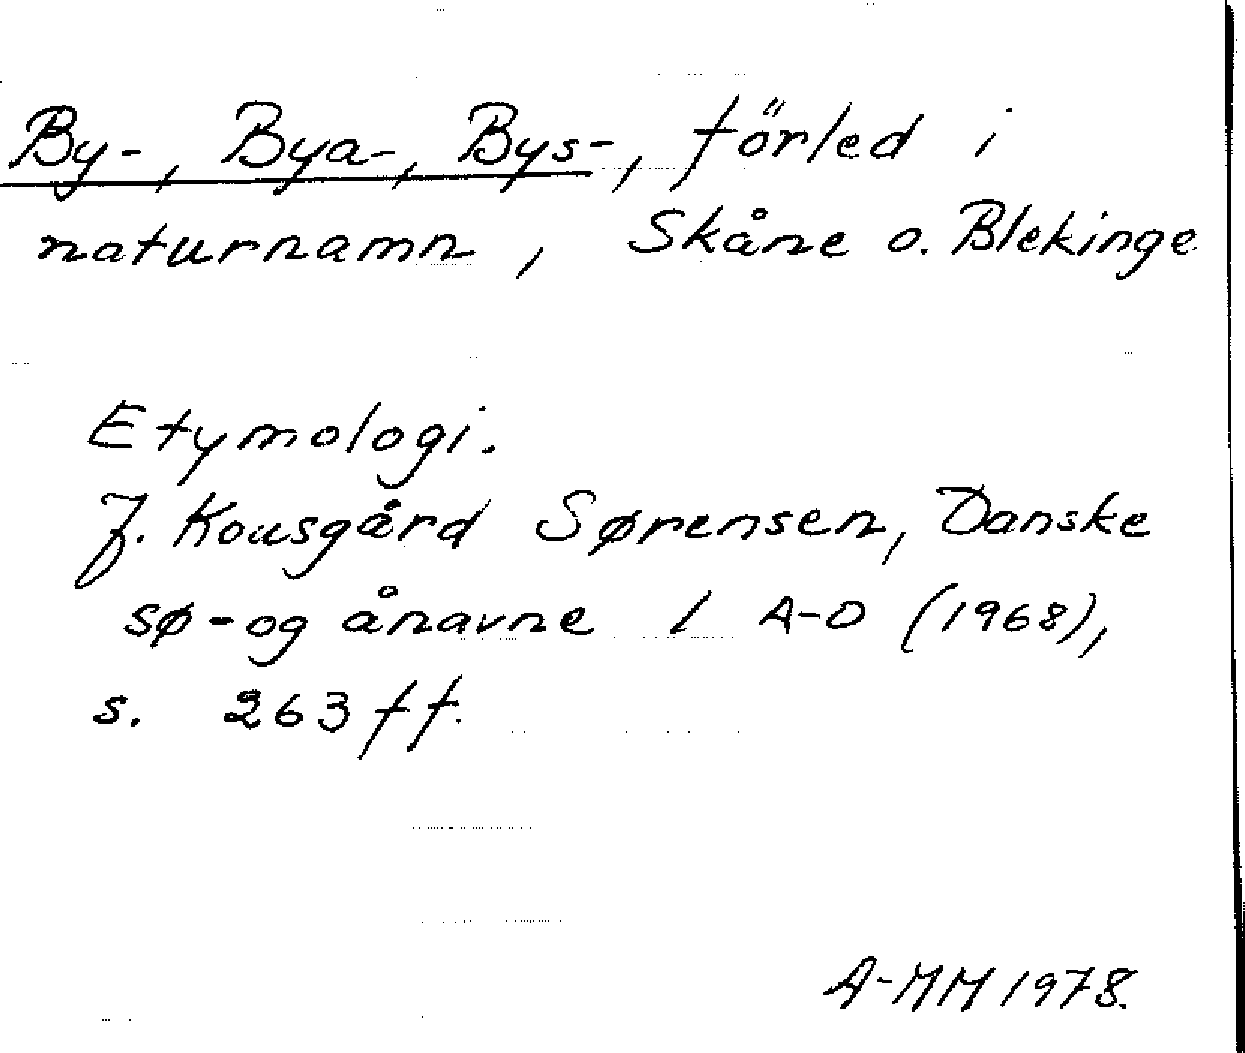 By-, Bya-, Bys-, förled i
naturnamn, Skåne o. Blekinge
Etymologi.
J. Kousgård Sørensen, Danske
sø- og ånavne 1 A-D (1968),
s. 263 ff.
A-MM 1978.